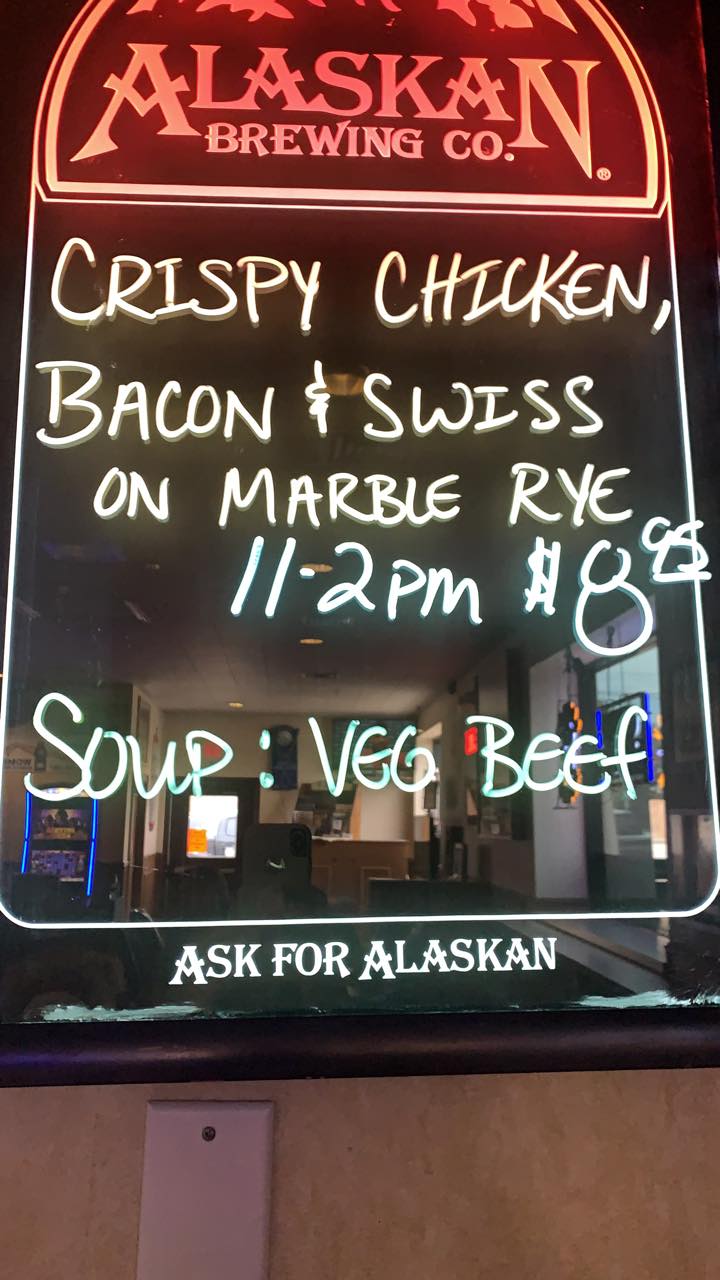 ALASKAN
BREWING CO.®
CRISPY CHICKEN,
BACON & SWISS
ON MARBLE RYE
11-2pm $8 95
SOUP: VEG BEEf
ASK FOR ALASKAN